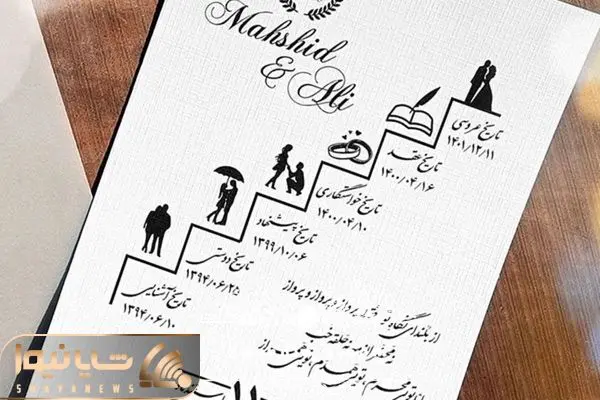 Mahshid
& Ali
تاریخ عروسی
۱۴۰۱/۱۲/۱۱
تاریخ عقد
۱۴۰۰/۰۴/۱۶
تاریخ خواستگاری
۱۴۰۰/۰۴/۱۰
تاریخ پیشنهاد
۱۳۹۹/۱۰/۰۶
تاریخ دوستی
۱۳۹۴/۰۶/۲۵
تاریخ آشنایی
۱۳۹۴/۰۶/۱۰
از بلندای نگاه تو پرواز و پرواز و پرواز
شایانیوز
SHAYANEWS